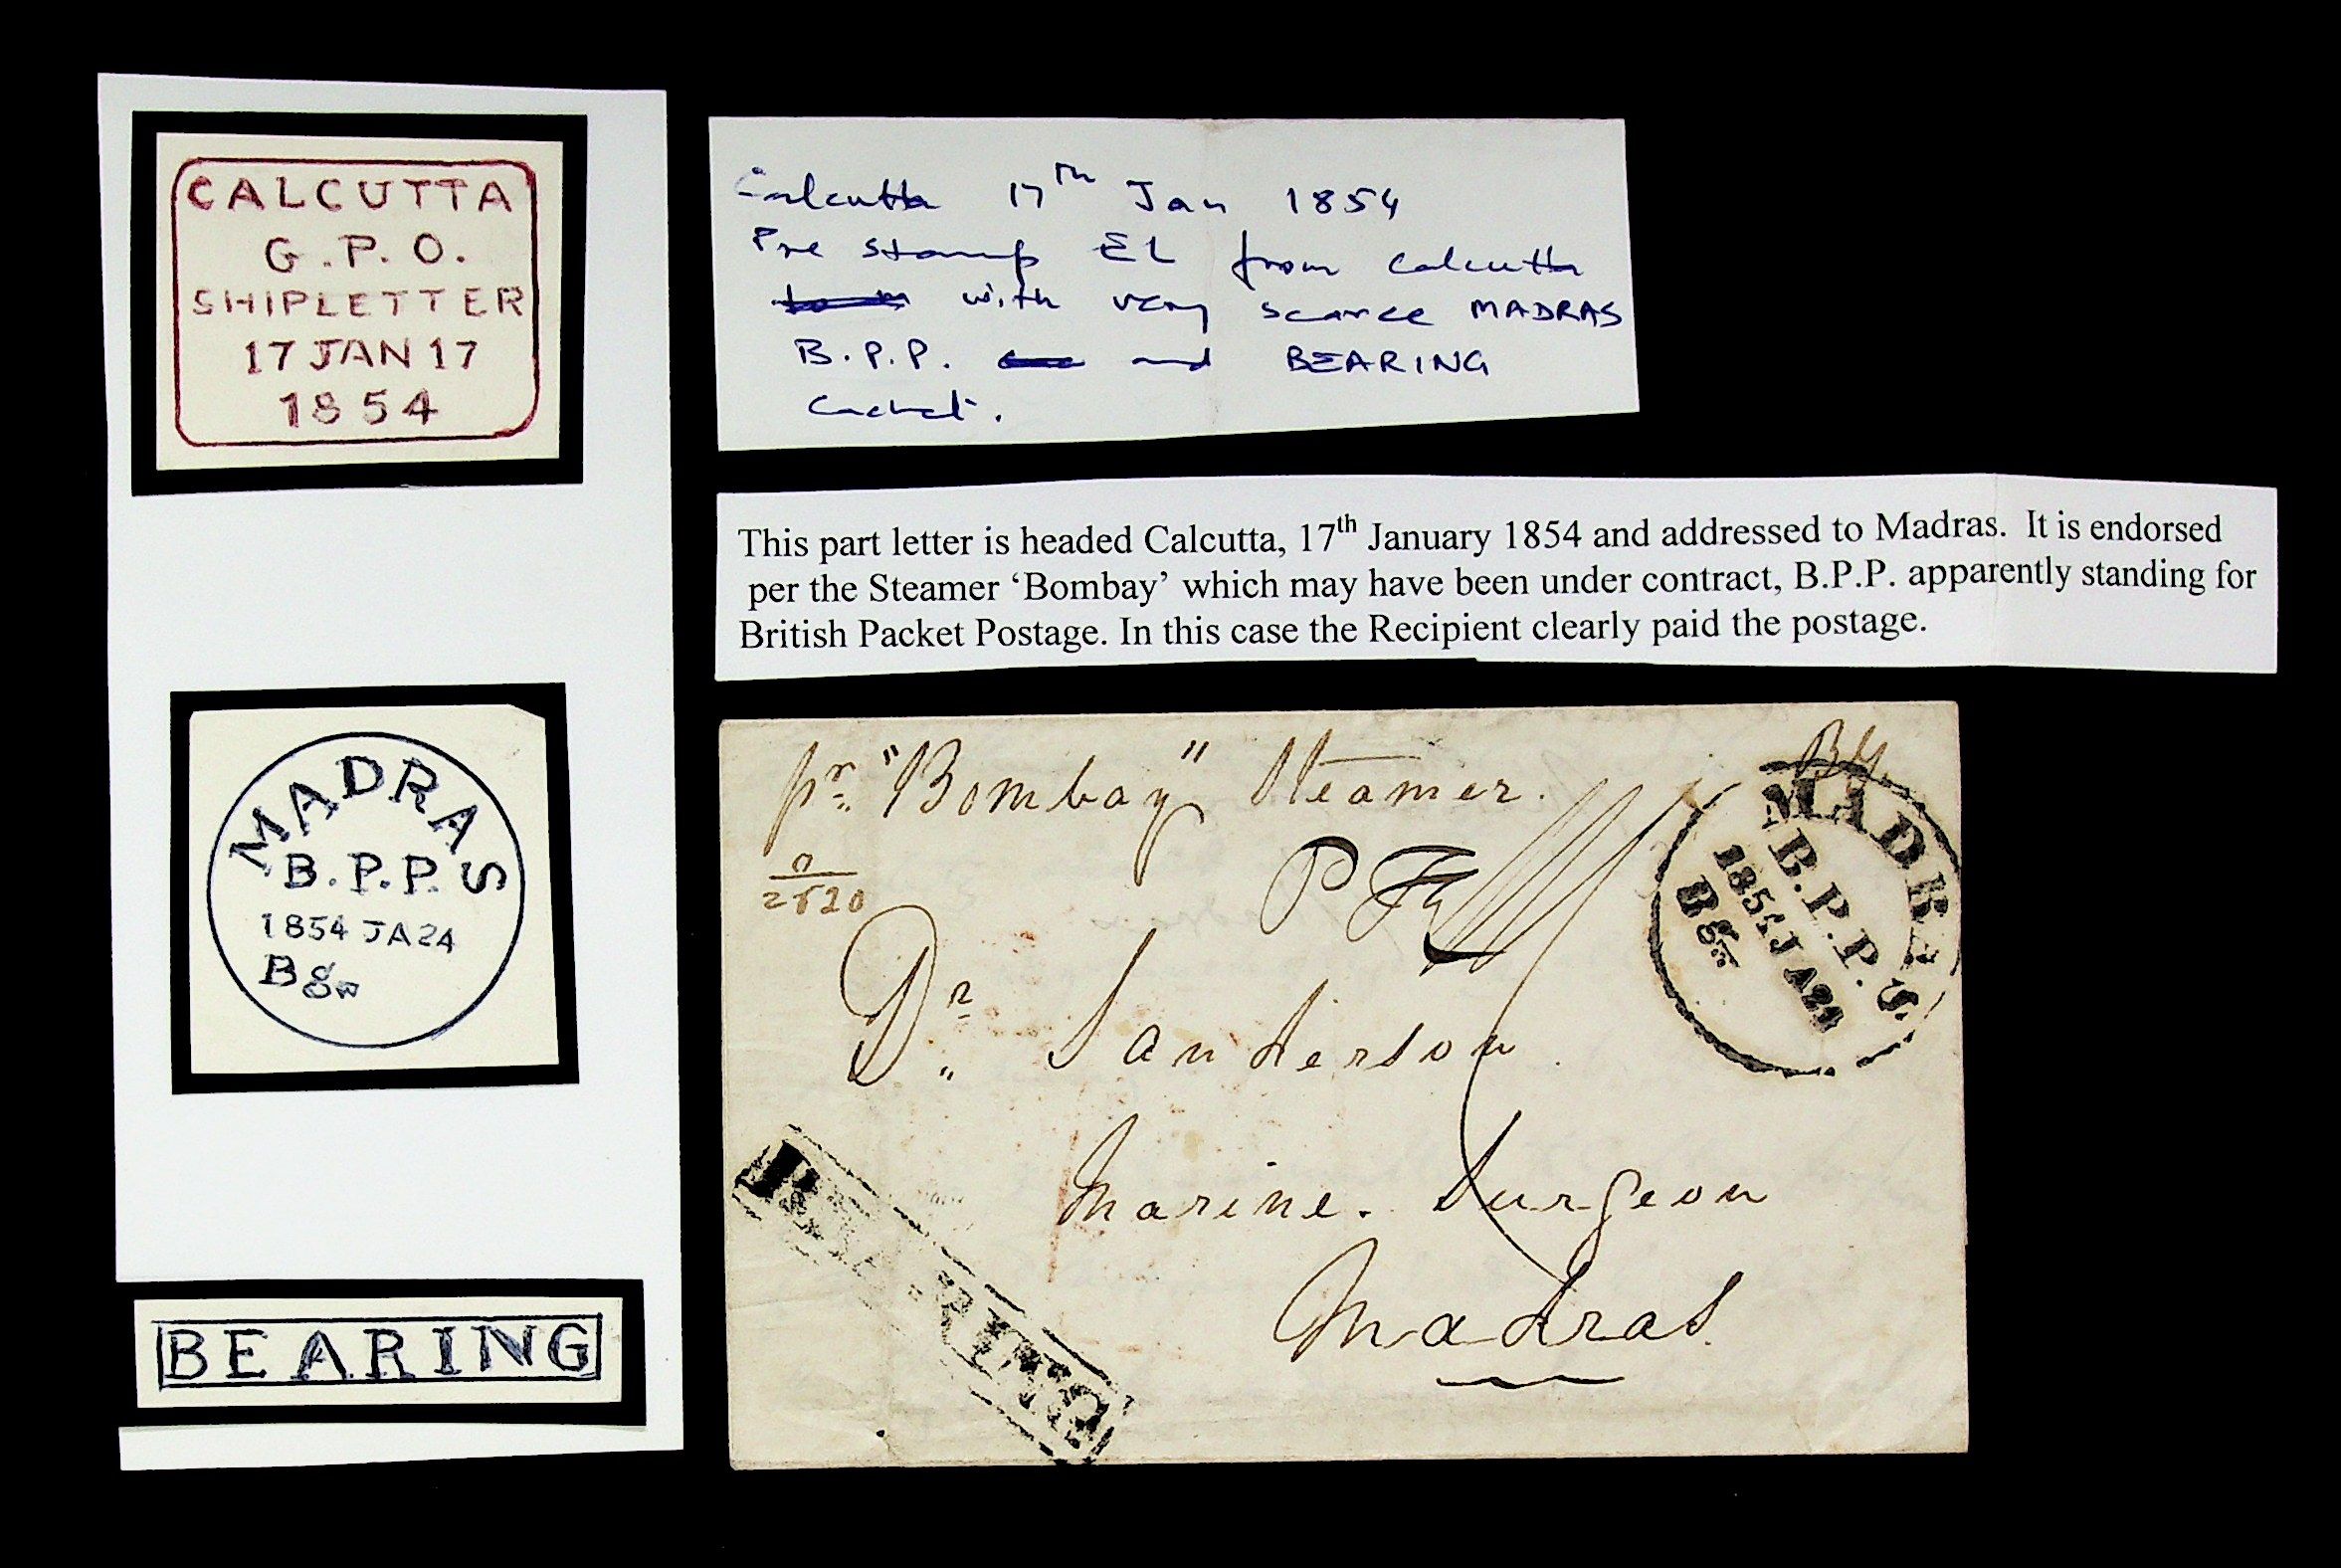 CALCUTTA
G.P.O.
SHIPLETTER
17 JAN 17
1854
MADRAS
B.P.P.
1854 JA24
Bg
BEARING
Calcutta 17th Jan 1854
Pre Stamp EL from Calcutta
with very scarce MADRAS
B.P.P. and BEARING
Cachet.
This part letter is headed Calcutta, 17th January 1854 and addressed to Madras. It is endorsed
per the Steamer ‘Bombay’ which may have been under contract, B.P.P. apparently standing for
British Packet Postage. In this case the Recipient clearly paid the postage.
pr. "Bombay" Steamer.
Bg.
MADRAS
B.P.P.
1854 JA24
Bg
Dr. Sanderson
Marine. Surgeon
Madras
BEARING